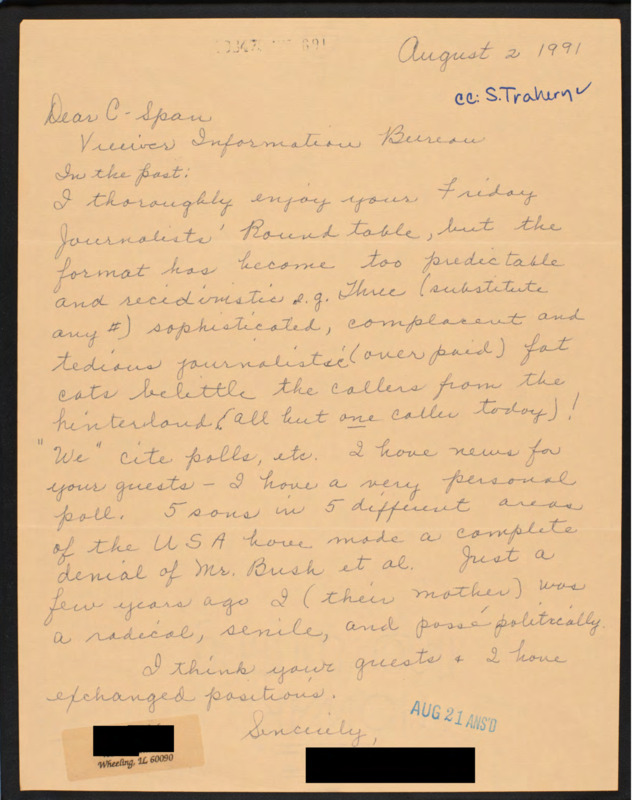 August 2 1991
cc: S. Trahern ✓
Dear C-Span
Viewer Information Bureau
In the past:
I thoroughly enjoy your Friday
Journalists' Round table, but the
format has become too predictable
and recidivistic e.g. Three (substitute
any #) sophisticated, complacent and
tedious journalists (over paid) fat
cats belittle the callers from the
hinterland (all but one caller today)!
"We" cite polls, etc. I have news for
your guests – I have a very personal
poll. 5 sons in 5 different areas
of the USA have made a complete
denial of Mr. Bush et al. Just a
few years ago I (their mother) was
a radical, senile, and possé politically.
I think your guests & I have
exchanged positions.
Sincerely,
AUG 21 ANS'D
Wheeling, IL 60090